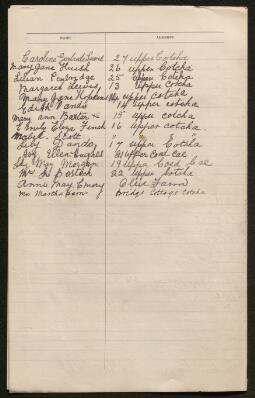 NAME ADDRESS
Caroline Gertrude Lewis 27 upper Cotcha
Mary Jane 26 upper Cotcha
Lilian Penbridge 25 upper Cotcha
Margaret Lewis 13 upper Cotcha
Mary Jane Hopkins upper cotcha
Edith Dando 14 upper cotcha
Mary ann Baxter 15 upper cotcha
Emily Eliza Finch 16 upper cotcha
Mabel Scott
Lily Dando 17 upper Cotcha
Ellen Hughes 21 upper Coed Cae
May Morgan 19 upper Coed Cae
Mrs M 22 upper Cotcha
Anna May Emery Farm
Mrs Martha Bridge Cottage Cotcha